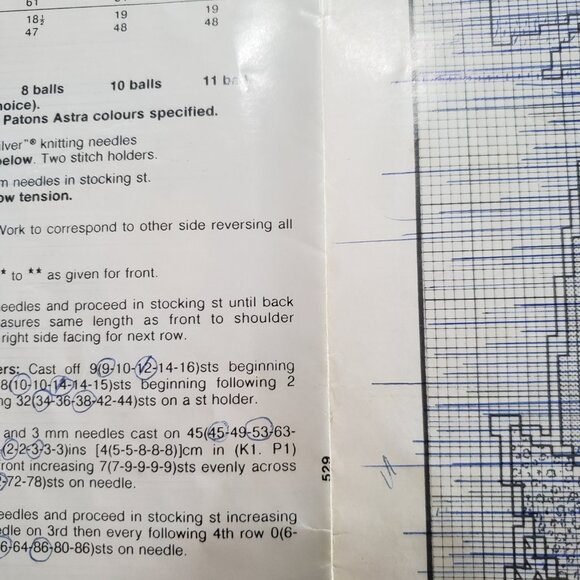 61
18½ 19 19
47 48 48
8 balls 10 balls 11
hoice).
Patons Astra colours specified.
ilver"® knitting needles
below. Two stitch holders.
m needles in stocking st.
ow tension.
Work to correspond to other side reversing all
* to ** as given for front.
needles and proceed in stocking st until back
asures same length as front to shoulder
right side facing for next row.
ers: Cast off 9(9-10-12-14-16)sts beginning
8(10-10-14-14-15)sts beginning following 2
ng 32(34-36-38-42-44)sts on a st holder.
and 3 mm needles cast on 45(45-49-53-63-
(2-2-3-3-3)ins [4(5-5-8-8-8)]cm in (K1. P1)
ront increasing 7(7-9-9-9-9)sts evenly across
-72-78)sts on needle.
eedles and proceed in stocking st increasing
edle on 3rd then every following 4th row 0(6-
6-64-86-80-86)sts on needle.
529